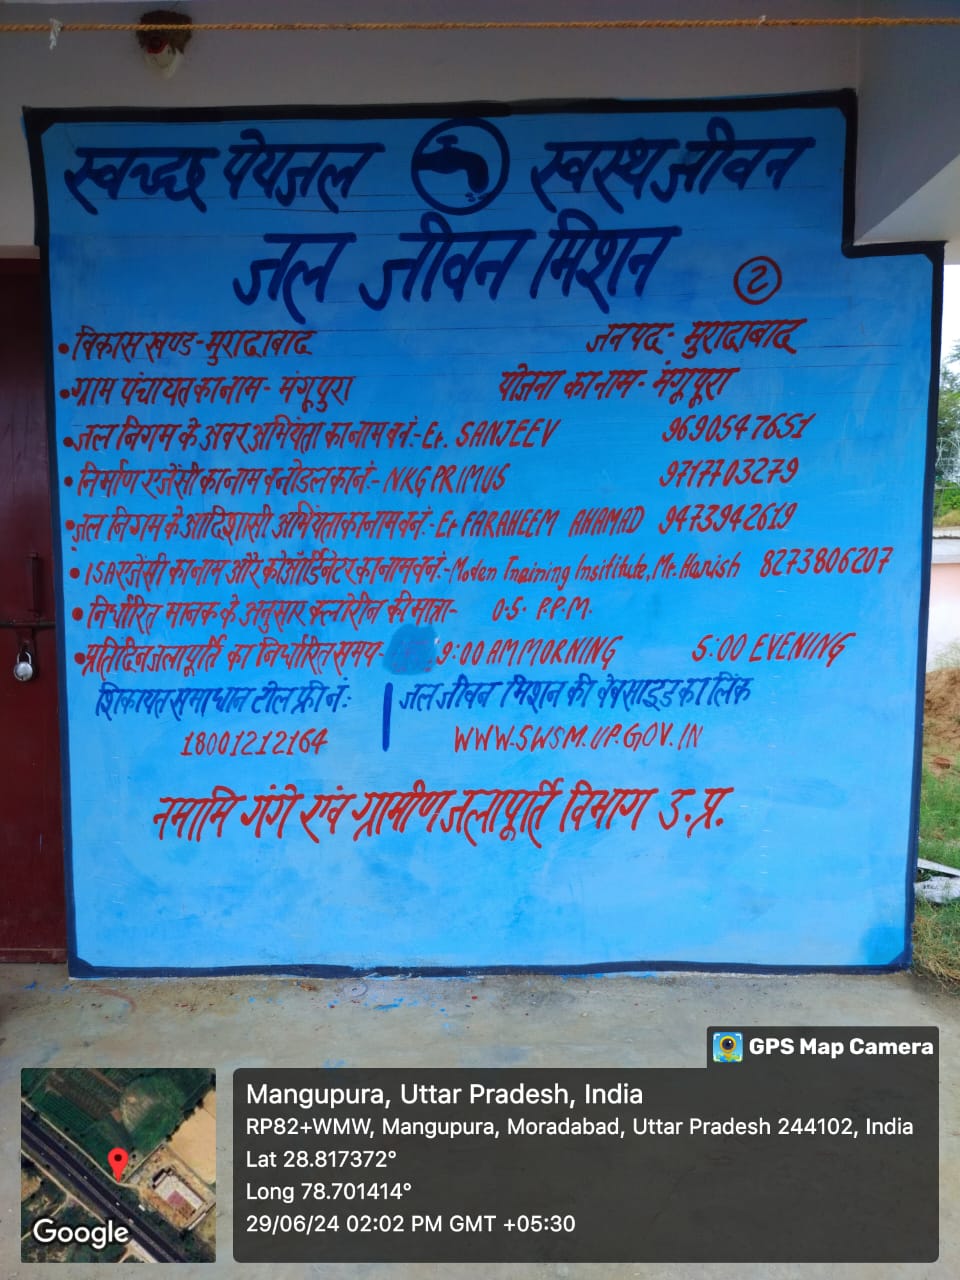 स्वच्छ पेयजल स्वस्थ जीवन
जल जीवन मिशन
2
• विकास खण्ड - मुरादाबाद जनपद - मुरादाबाद
• ग्राम पंचायत का नाम - मंगूपुरा योजना का नाम - मंगूपूरा
• जल निगम के अवर अभियंता का नाम व नं:- Er. SANJEEV 9690547651
• निर्माण एजेंसी का नाम व नोडल का नं:- NKG PRIMUS 9717703279
• जल निगम के आदिशासी अभियंता का नाम व नं:- Er FARAHEEM AHAMAD 9473942619
• ISA एजेंसी का नाम और कोऑर्डिनेटर का नाम व नं:- Moden Training Insititute, Mr. Harish 8273806207
• निर्धारित मानक के अनुसार क्लोरीन की मात्रा - 0.5 P.P.M.
• प्रतिदिन जलापूर्ति का निर्धारित समय - 9:00 AM MORNING 5:00 EVENING
शिकायत समाधान टोल फ्री नं: जल जीवन मिशन की वेबसाइड का लिंक
18001212164 WWW.SWSM.UP.GOV.IN
नमामि गंगे एंव ग्रामीण जलापूर्ति विभाग उ.प्र.
GPS Map Camera
Mangupura, Uttar Pradesh, India
RP82+WMW, Mangupura, Moradabad, Uttar Pradesh 244102, India
Lat 28.817372°
Long 78.701414°
29/06/24 02:02 PM GMT +05:30
Google